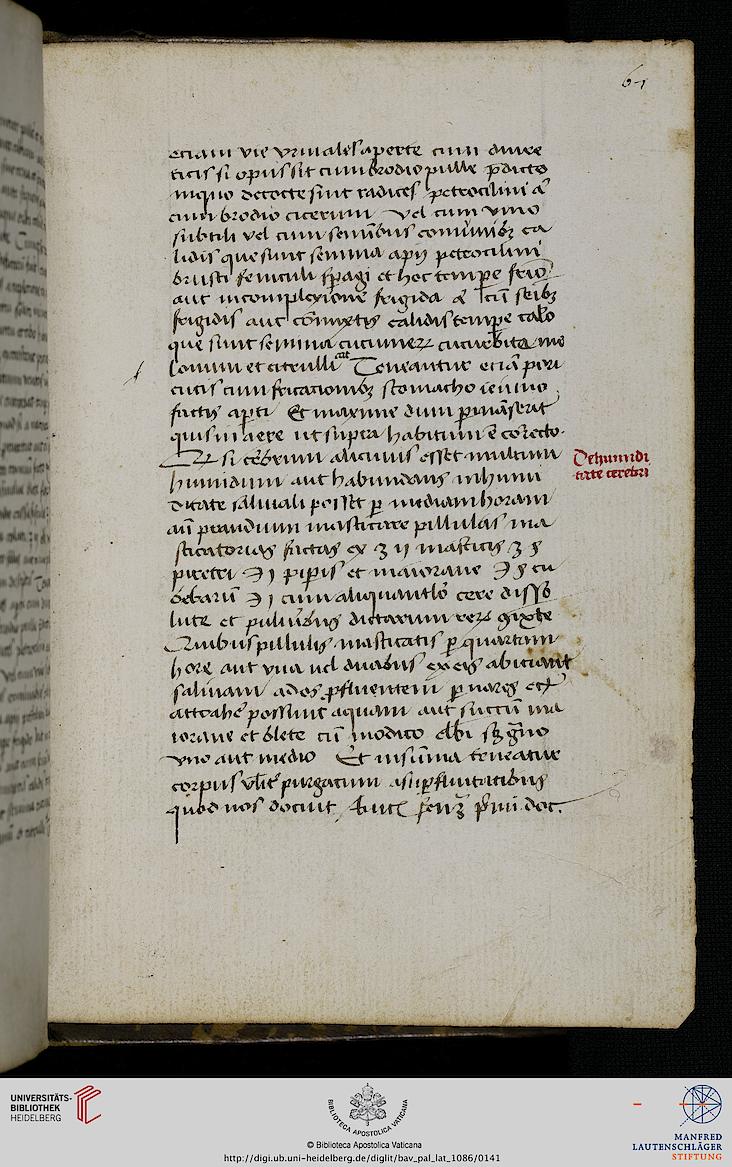 61
etiam vie urinales aperte cum diure
ticis si opus sit cum brodio pulle p̄dicto
in quo decocte sint radices petrocilini &
cum brodio cicerum vel cum vino
subtili vel cum seminibus comūnibꝫ ca
lidis que sunt semina apij petrocilini
brusci feniculi spagi et hoc tempe frīo
aut in complexione frigida & cū seībꝫ
frigidis aut cōmixtis calidis tempe calīo
que sunt semina cucumeꝝ cucurbita me
lonum et citrulli Teneantur etiā pori
cutis cum fricationibꝫ stomacho ieiuno
factis apti Et maxime dum pmāserit
quis in aere ut supra habitum ē correcto
Et si cerebrum alicuius esset multum
humidum aut habundans in humi
ditate salivali posset p mediam horam
an̄ prandium masticare pillulas ma
sticatorias factas ex ʒ ij masticis ʒ
piretri ℈ j pipis et maiorane ℈ cu
bebarū ℈ j cum aliquantlō cere disso
lute et pulveribus dictarum rerum
Quibus pillulis masticatis p quartam
hore aut una vel duabus ex eis abiciant
salivam ad os pfluentem p nares
attrahe possint aquam aut succū ma
iorane et blete cū modico albi
uno aut medio Et in sūma teneatur
corpus purgatum a supfluitatibus
quod nos docuit
De humidi
tate cerebri
UNIVERSITÄTS-
BIBLIOTHEK
HEIDELBERG
BIBLIOTECA APOSTOLICA VATICANA
© Biblioteca Apostolica Vaticana
http://digi.ub.uni-heidelberg.de/diglit/bav_pal_lat_1086/0141
MANFRED
LAUTENSCHLÄGER
STIFTUNG